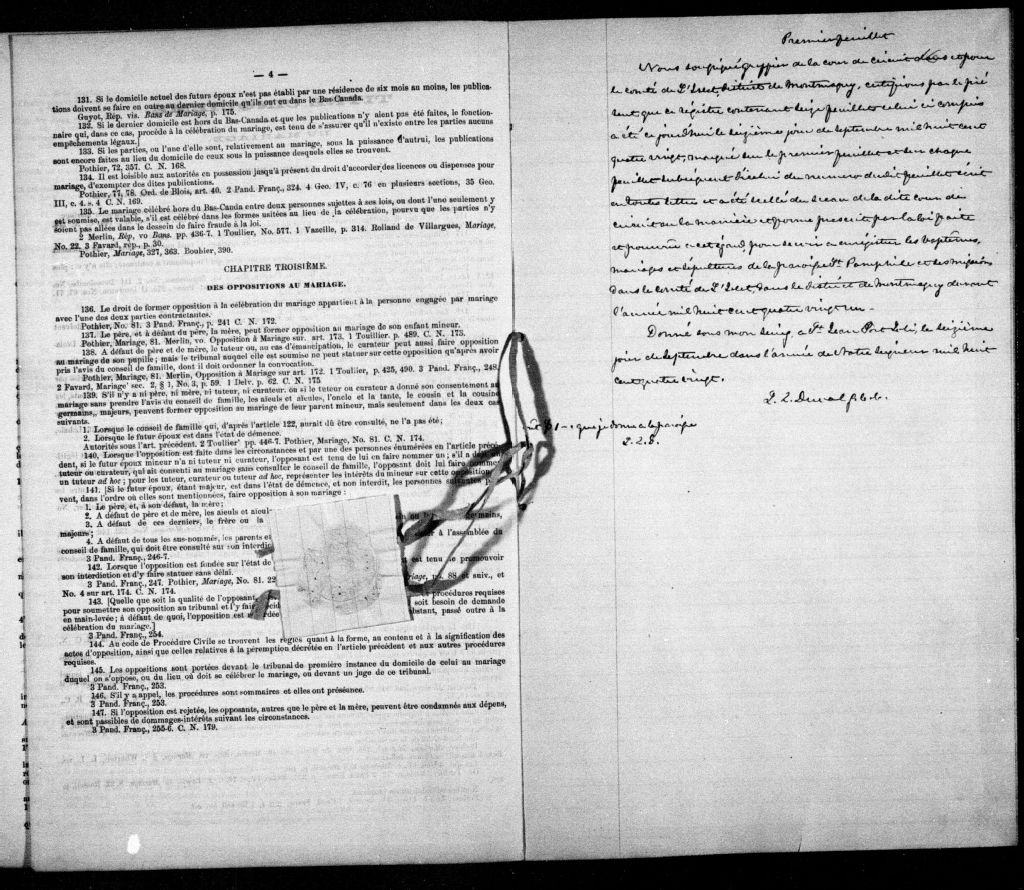 — 4 —
131. Si le domicile actuel des futurs époux n'est pas établi par une résidence de six mois au moins, les publica-
tions doivent se faire en outre au dernier domicile qu'ils ont eu dans le Bas-Canada.
Guyot, Rép. vis. Bans de Mariage, p. 175.
132. Si le dernier domicile est hors du Bas-Canada et que les publications n'y aient pas été faites, le fonction-
naire qui, dans ce cas, procède à la célébration du mariage, est tenu de s'assurer qu'il n'existe entre les parties aucuns
empêchements légaux.]
133. Si les parties, ou l'une d'elle sont, relativement au mariage, sous la puissance d'autrui, les publications
sont encore faites au lieu du domicile de ceux sous la puissance desquels elles se trouvent.
Pothier, 72, 357. C. N. 168.
134. Il est loisible aux autorités en possession jusqu'à présent du droit d'accorder des licences ou dispenses pour
mariage, d'exempter des dites publications.
Pothier, 77, 78. Ord. de Blois, art. 40. 2 Pand. Franç., 324. 4 Geo. IV, c. 76 en plusieurs sections, 35 Geo.
III, c. 4. s. 4 C. N. 169.
135. Le mariage célébré hors du Bas-Canda entre deux personnes sujettes à ses lois, ou dont l'une seulement y
est soumise, est valable, s'il est célébré dans les formes usitées au lieu de la célébration, pourvu que les parties n'y
soient pas allées dans le dessein de faire fraude à la loi.
2 Merlin, Rép, vo Bans. pp. 436-7. 1 Toullier, No. 577. 1 Vazeille, p. 314. Rolland de Villargues, Mariage,
No. 22. 3 Favard, rép., p. 30.
Pothier, Mariage, 327, 363. Bouhier, 390.
CHAPITRE TROISIÈME.
DES OPPOSITIONS AU MARIAGE.
136. Le droit de former opposition à la célébration du mariage appartient à la personne engagée par mariage
avec l'une des deux parties contractantes.
Pothier, No. 81. 3 Pand. Franç., p. 241 C. N. 172.
137. Le père, et à défaut du père, la mère, peut former opposition au mariage de son enfant mineur.
Pothier, Mariage, 81. Merlin, vo. Opposition à Mariage sur. art. 173. 1 Touillier. p. 489. C. N. 173.
138. A défaut de père et de mère, le tuteur ou, au cas d'émancipation, le curateur peut aussi faire opposition
au mariage de son pupille; mais le tribunal auquel elle est soumise ne peut statuer sur cette opposition qu'après avoir
pris l'avis du conseil de famille, dont il doit ordonner la convocation.
Pothier, Mariage, 81. Merlin, Opposition à Mariage sur art. 172. 1 Toullier, p. 425, 490. 3 Pand. Franç., 248.
2 Favard, Mariage' sec. 2, § 1, No. 3, p. 59. 1 Delv. p. 62. C. N. 175
139. S'il n'y a ni père, ni mère, ni tuteur, ni curateur, ou si le tuteur ou curateur a donné son consentement au
mariage sans prendre l'avis du conseil de famille, les aïeuls et aïeules, l'oncle et la tante, le cousin et la cousine
germains,, majeurs, peuvent former opposition au mariage de leur parent mineur, mais seulement dans les deux cas
suivants.
1. Lorsque le conseil de famille qui, d'après l'article 122, aurait dû être consulté, ne l'a pas été;
2. Lorsque le futur époux est dans l'état de démence.
Autorités sous l'art. précédent. 2 Toullier' pp. 446-7. Pothier, Mariage, No. 81. C. N. 174.
140. Lorsque l'opposition est faite dans les circonstances et par une des personnes énumérées en l'article précé-
dent, si le futur époux mineur n'a ni tuteur ni curateur, l'opposant est tenu de lui en faire nommer un; s'il a déjà
tuteur ou curateur, qui ait consenti au mariage sans consulter le conseil de famille, l'opposant doit lui faire nommer
un tuteur ad hoc; pour les tuteur, curateur ou tuteur ad hoc, représenter les intérêts du mineur sur cette opposition.
141. [Si le futur époux, étant majeur, est dans l'état de démence, et non interdit, les personnes suivantes p
vent, dans l'ordre où elles sont mentionnées, faire opposition à son mariage:
1. Le père, et, à son défaut, la mère;
2. A défaut de père et de mère, les aïeuls et aïeul-
3. A défaut de ces derniers, le frère ou la
mains,
majeurs;
4. A défaut de tous les sus-nommés, les parents et
à l'assemblée du
conseil de famille, qui doit être consulté sur son interdic
3 Pand. Franç., 246-7.
142. Lorsque l'opposition est fondée sur l'état de
est tenu de promouvoir
son interdiction et d'y faire statuer sans délai.
3 Pand. Franç., 247. Pothier, Mariage, No. 81. 22
riage, pp. 88 et suiv., et
No. 4 sur art. 174. C. N. 174.
143. [Quelle que soit la qualité de l'opposant,
procédures requises
pour soumettre son opposition au tribunal et l'y fair
soit besoin de demande
en main-levée; à défaut de quoi, l'opposition est
bstant, passé outre à la
célébration du mariage.]
3 Pand. Franç., 254.
144. Au code de Procédure Civile se trouvent les règles quant à la forme, au contenu et à la signification des
actes d'opposition, ainsi que celles relatives à la péremption décrétée en l'article précédent et aux autres procédures
requises.
145. Les oppositions sont portées devant le tribunal de première instance du domicile de celui au mariage
duquel on s'oppose, ou du lieu où doit se célébrer le mariage, ou devant un juge de ce tribunal.
3 Pand. Franç., 253.
146. S'il y a appel, les procédures sont sommaires et elles ont préséance.
3 Pand. Franç., 253.
147. Si l'opposition est rejetée, les opposants, autres que le père et la mère, peuvent être condamnés aux dépens,
et sont passibles de dommages-intérêts suivant les circonstances.
3 Pand. Franç., 255-6. C. N. 179.
Premier feuillet
Nous soussigné greffier de la cour de circuit dans et pour
le comté de L'Islet, district de Montmagny, certifions par le pré
sent que ce registre contenant seize feuillets celui ci compris
a été ce jourd'hui le seizième jour de septembre mil huit cent
quatre vingt, marqué sur le premier feuillet et sur chaque
feuillet subséquent du numero du dit feuillet écrit
en toutes lettres et a été scellé du sceau de la dite cour de
circuit en la manière et forme prescrit par la loi faite
et pourvue à cet égard, pour servir à enregistrer les baptêmes,
mariages et sépultures de la paroisse St. Pamphile et des missions
dans le comté de L'Islet, dans le district de Montmagny durant
l'année mil huit cent quatre vingt un.
Donné sous mon seing à St. Jean Port Joli, le seizième
jour de septembre dans l'année de Notre Seigneur mil huit
cent quatre vingt.